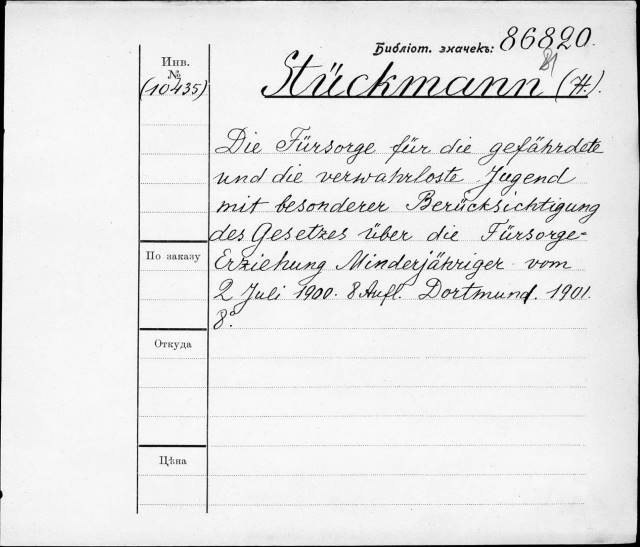 Библіот. значекъ: 86820.
81
Инв.
№
(10435)
Stückmann (H.).
Die Fürsorge für die gefährdete
und die verwahrloste Jugend
mit besonderer Berücksichtigung
des Gesetzes über die Fürsorge-
Erziehung Minderjähriger vom
2 Juli 1900. 8 Aufl. Dortmund. 1901.
8°.
По заказу
Откуда
Цѣна